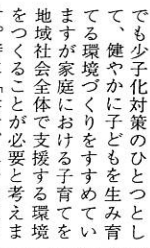 でも少子化対策のひとつとし
て、健やかに子どもを生み育
てる環境づくりをすすめてい
ますが家庭における子育てを
地域社会全体で支援する環境
をつくることが必要と考えま